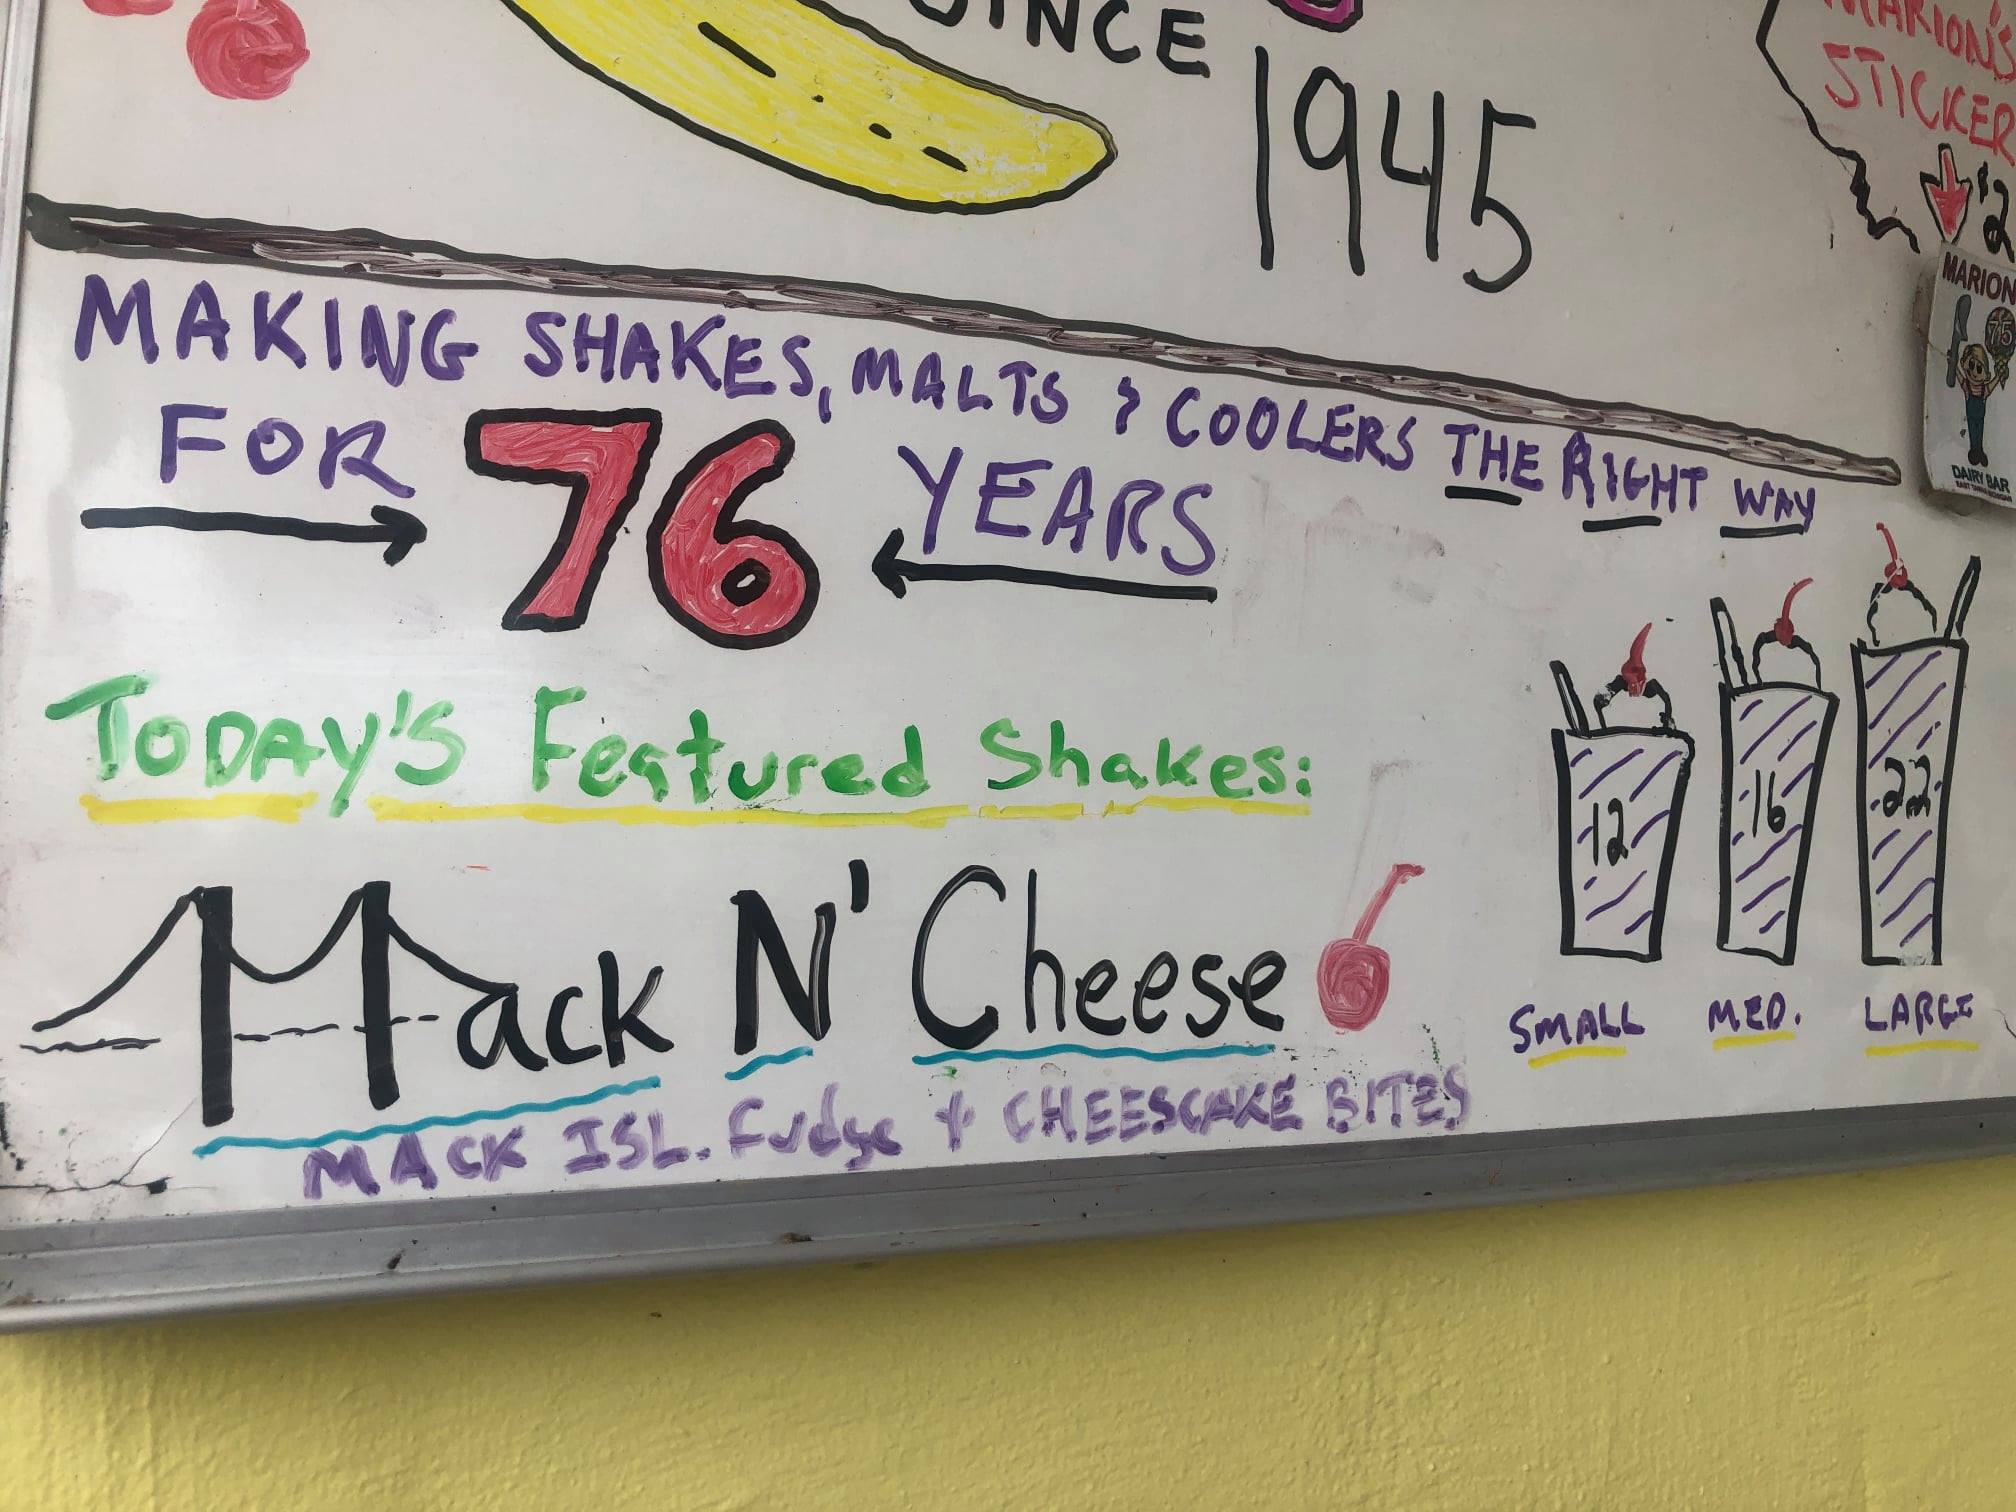 SINCE
1945
MARION'S
STICKER
$2
MARION
75
DAIRY BAR
MAKING SHAKES, MALTS & COOLERS THE RIGHT WAY
FOR 76 YEARS
TODAY'S Featured Shakes:
Mack N' Cheese
MACK ISL. Fudge & CHEESECAKE BITES
12 16 22
SMALL MED. LARGE